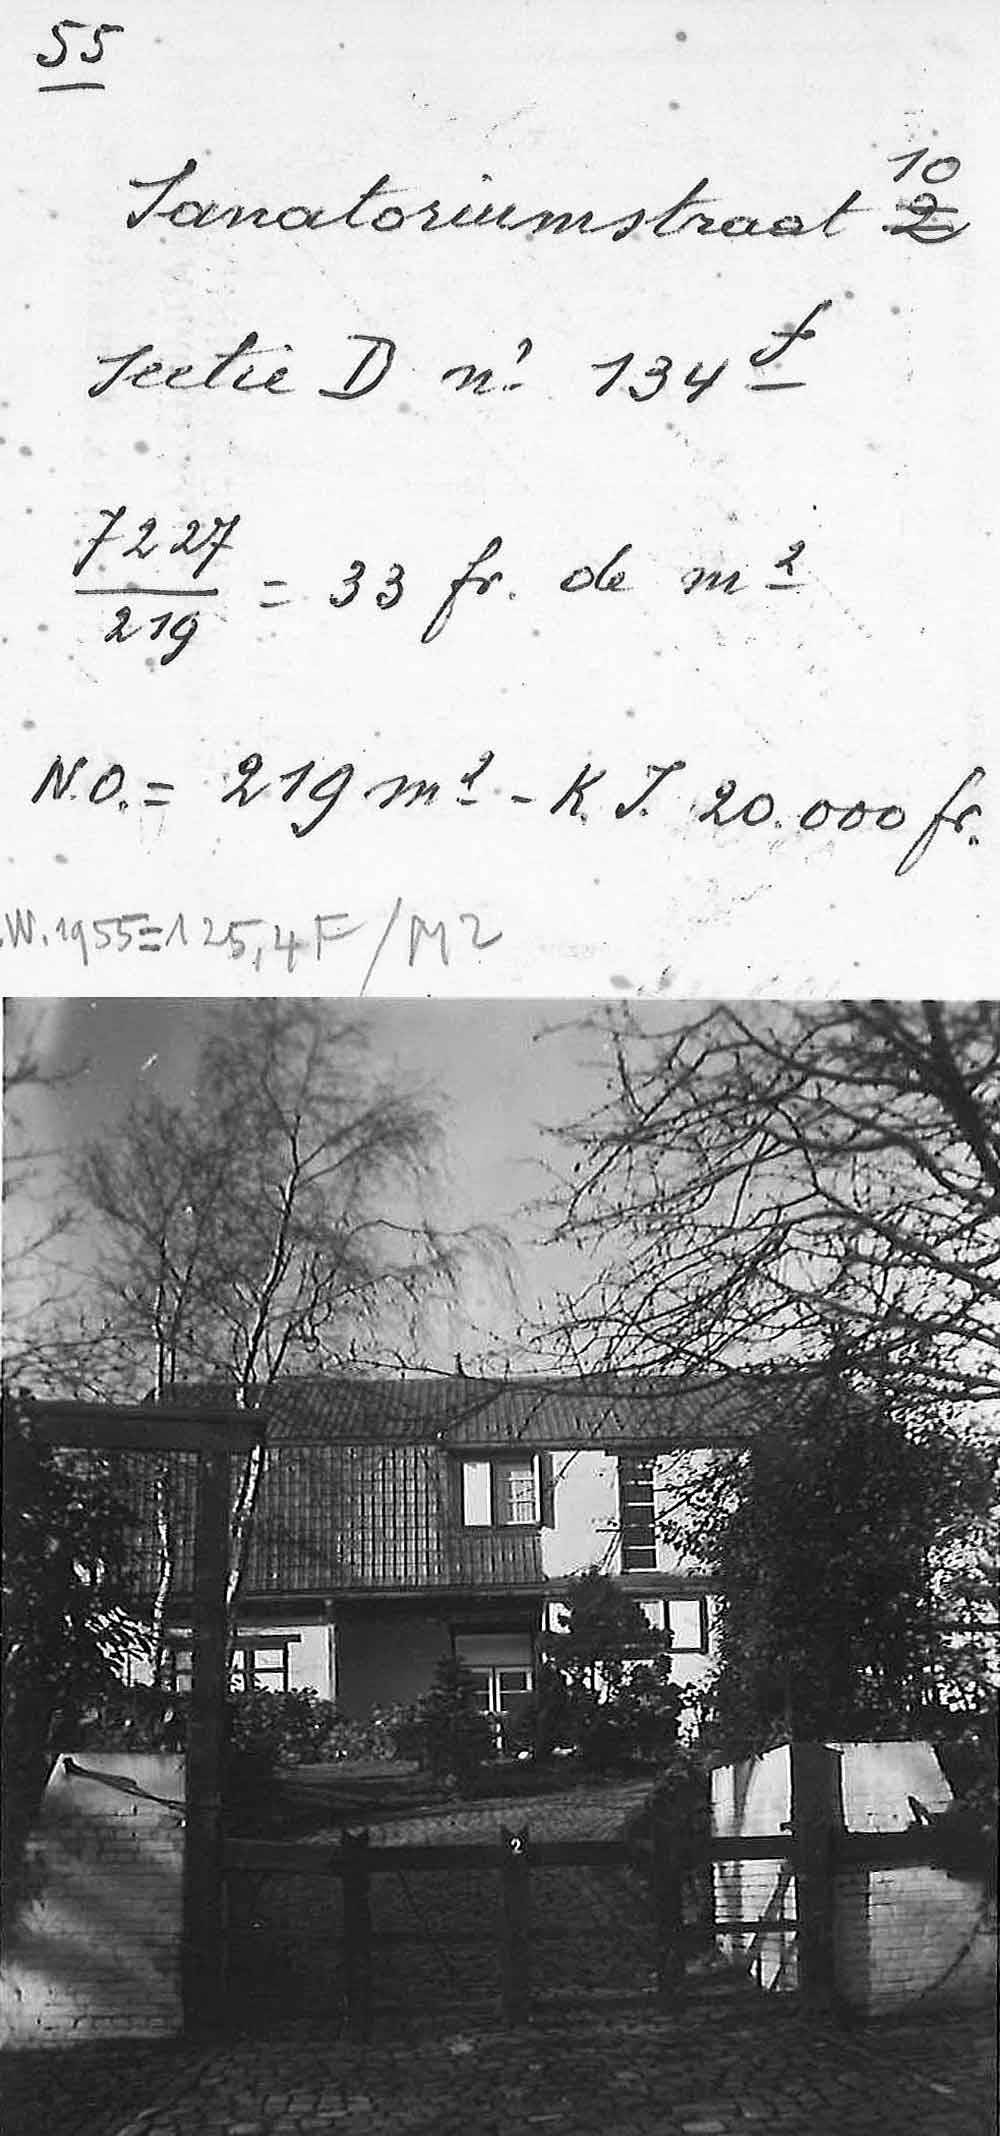 55
10
Sanatoriumstraat 2
Sectie D nr. 134 f
7227
219
= 33 fr. de m2
N.O. = 219 m2 - K.I. 20.000 fr.
.W. 1955=125,4F/M2
2